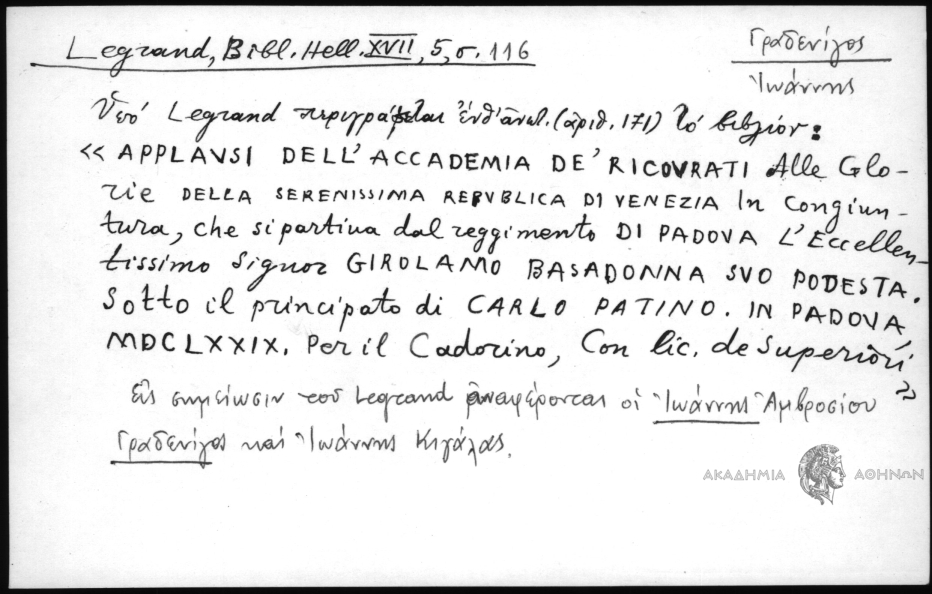 Legrand, Bibl. Hell. XVII, 5, σ. 116
Γραδενίγος
Ἰωάννης
Ὑπό Legrand περιγράφεται ἐνθ' ἀνωτ. (ἀριθ. 171) τό βιβλίον:
« APPLAVSI DELL' ACCADEMIA DE' RICOVRATI Alle Glo-
rie DELLA SERENISSIMA REPVBLICA DI VENEZIA In Congiun-
tura, che si partiua dal reggimento DI PADOVA L'Eccellen-
tissimo Signor GIROLAMO BASADONNA SVO PODESTA.
Sotto il principato di CARLO PATINO. IN PADOVA
MDCLXXIX. Per il Cadorino, Con lic. de Superiori
»
Εἰς σημείωσιν τοῦ Legrand ἀναφέρονται οἱ Ἰωάννης Ἀμβροσίου
Γραδενίγος καί Ἰωάννης Κιγάλας.
ΑΚΑΔΗΜΙΑ ΑΘΗΝΩΝ